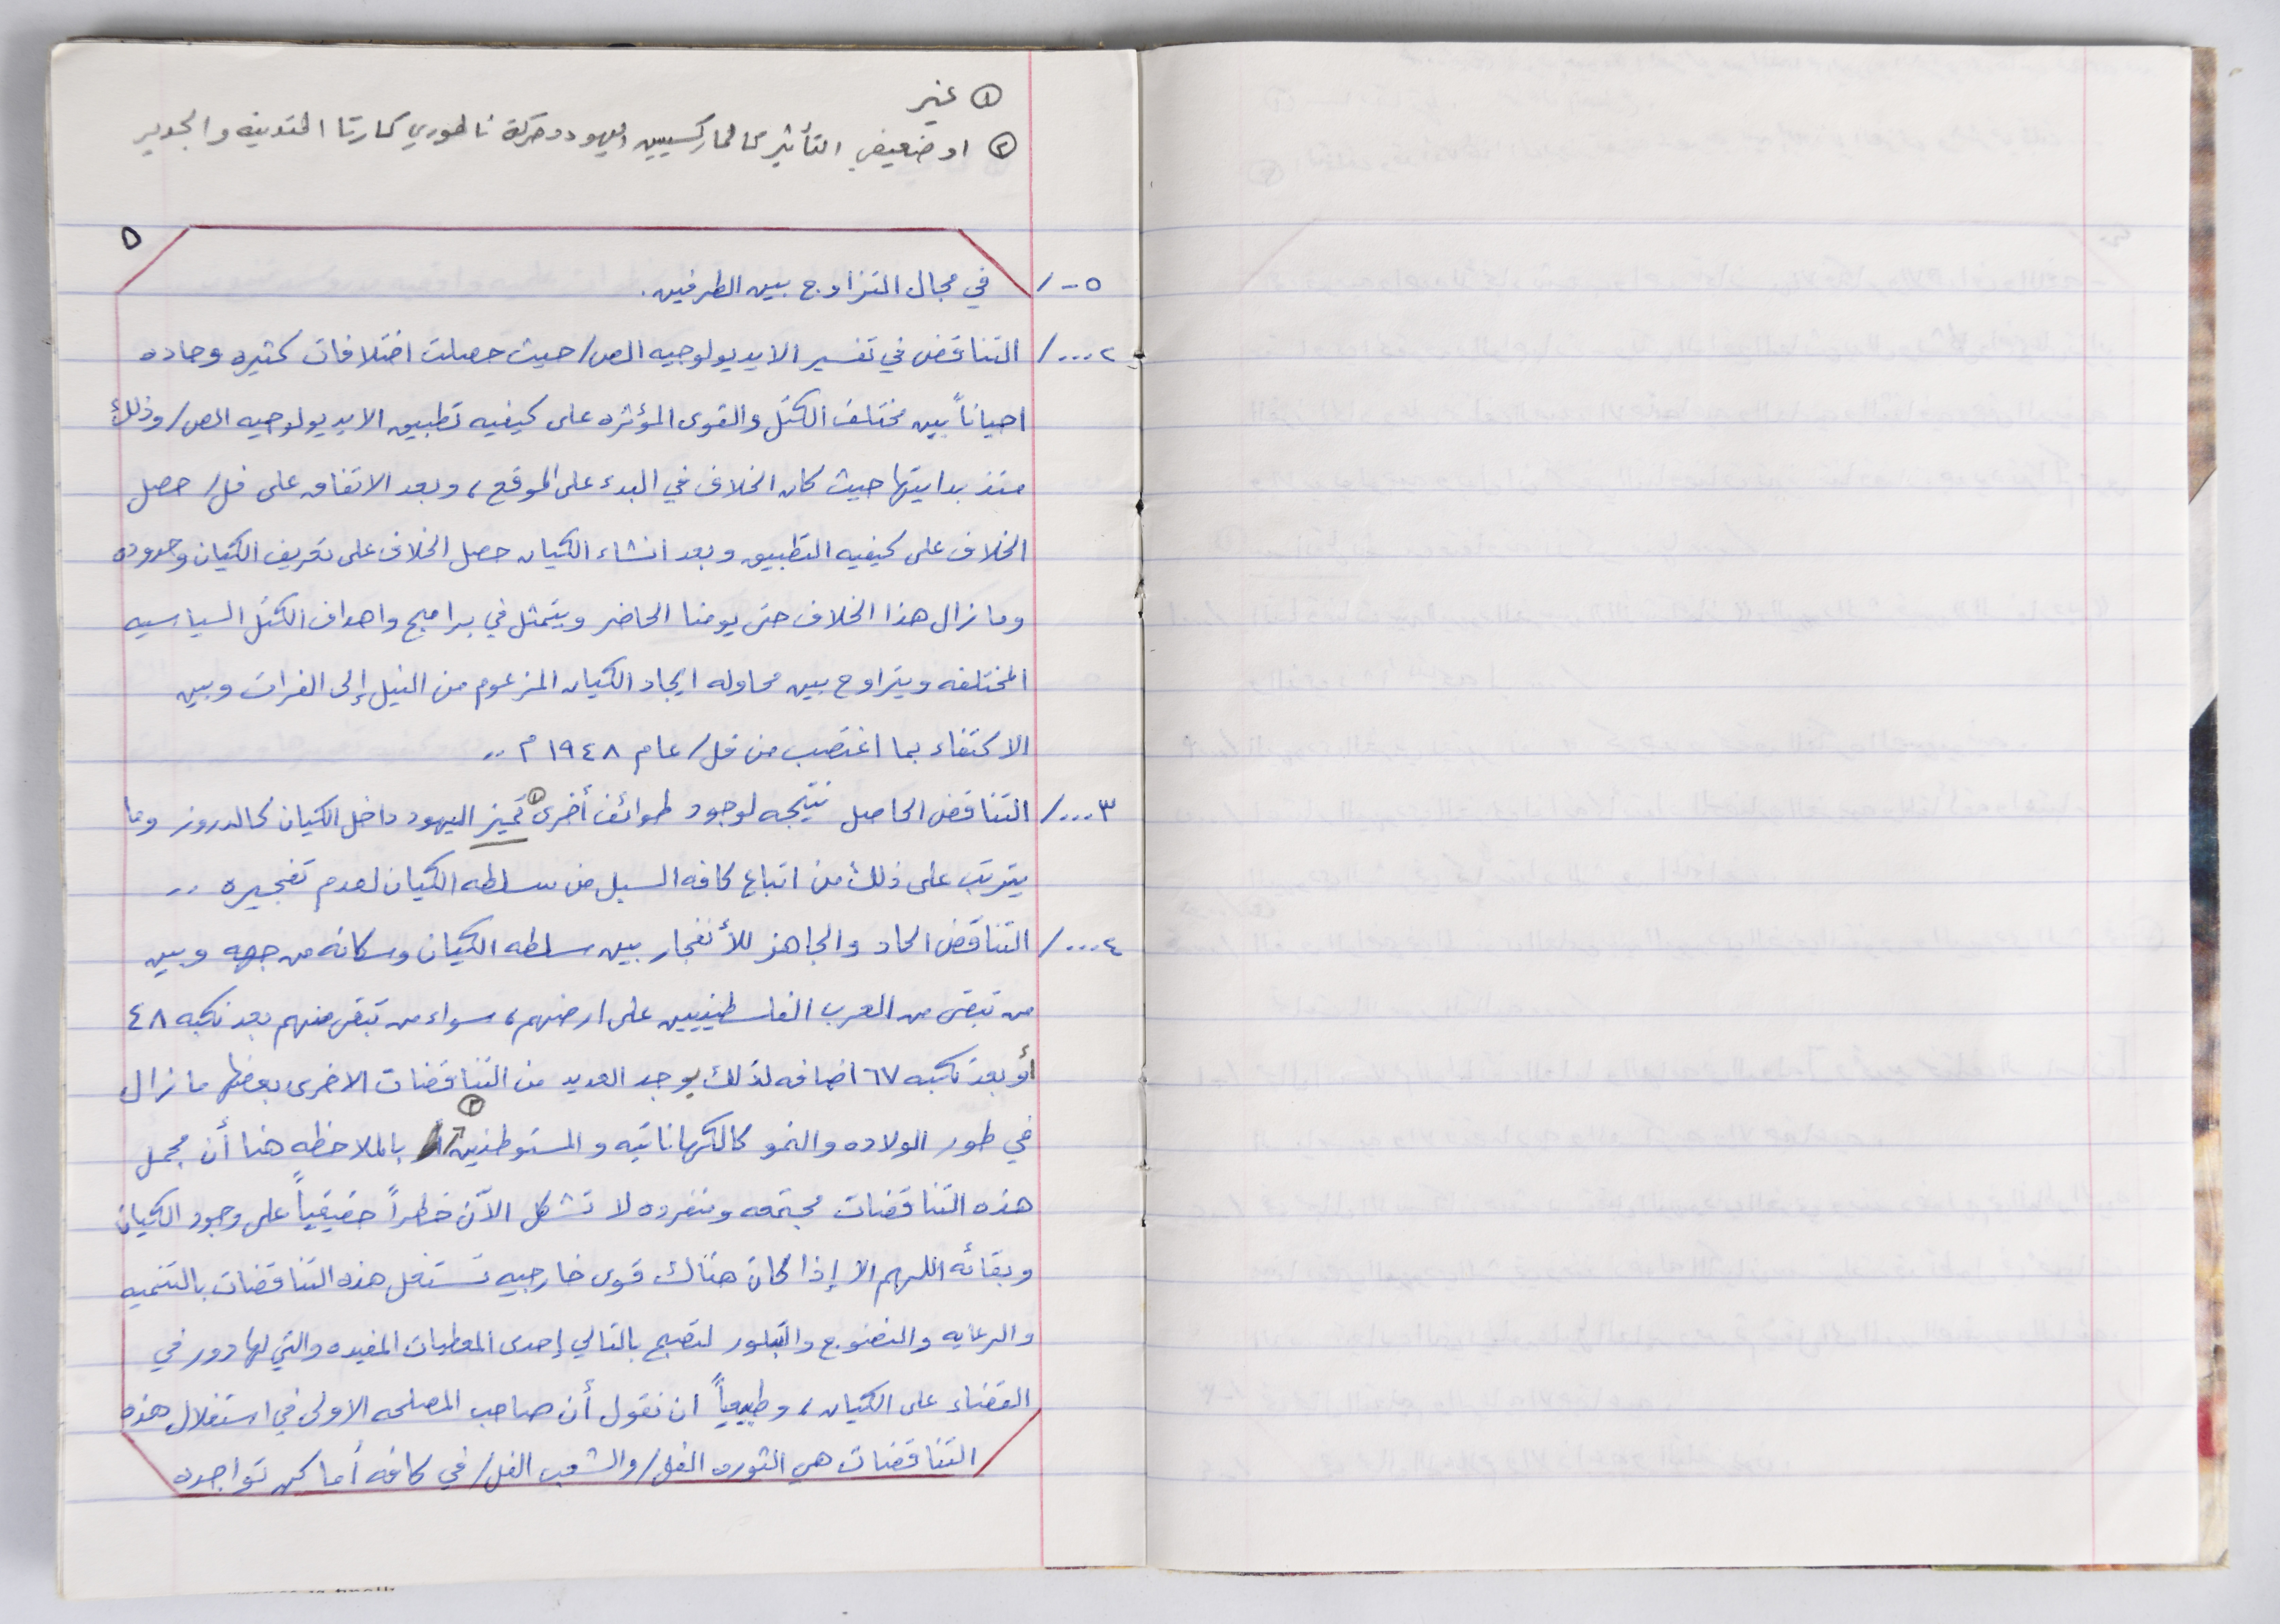 ① غير
② او ضعيفي التأثير كالماركسيين اليهود وحركة ناطوري كارتا المتدينه والجدير
٥
٥-/ في مجال التزاوج بين الطرفين.
٢.../ التناقض في تفسير الايديولوجيه الص/ حيث حصلت اختلافات كثيره وحاده
احياناً بين مختلف الكتل والقوى المؤثره على كيفيه تطبيق الايديولوجيه الص/ وذلك
منذ بدايتها حيث كان الخلاف في البدء على الموقع، وبعد الاتفاق على فل/ حصل
الخلاف على كيفيه التطبيق وبعد انشاء الكيان حصل الخلاف على تعريف الكيان وحدوده
وما زال هذا الخلاف حتى يومنا الحاضر ويتمثل في برامج واهداف الكتل السياسيه
المختلفه ويتراوح بين محاوله ايجاد الكيان المزعوم من النيل إلى الفرات وبين
الاكتفاء بما اغتصب من فل/ عام ١٩٤٨ م ..
٣.../ التناقض الحاصل نتيجه لوجود طوائف أخرى ① غير اليهود داخل الكيان كالدروز وما
يترتب على ذلك من اتباع كافه السبل من سلطه الكيان لعدم تفجيره ..
٤.../ التناقض الحاد والجاهز للأنفجار بين سلطه الكيان وسكانه من جهه وبين
من تبقى من العرب الفلسطينيين على ارضهم، سواء من تبقى منهم بعد نكبه ٤٨
أو بعد نكبه ٦٧ اضافه لذلك يوجد العديد من التناقضات الاخرى بعضها ما زال
في طور الولاده والنمو كالكهاناتيه والمستوطنين ② بالملاحظه هنا أن مجمل
هذه التناقضات مجتمعه ومنفرده لا تشكل الآن خطراً حقيقياً على وجود الكيان
وبقائه اللهم الا إذا كان هناك قوى خارجيه تستغل هذه التناقضات بالتنميه
والرعايه والنضوج والتبلور لتصبح بالتالي إحدى المعطيات المفيده والتي لها دور في
القضاء على الكيان، وطبيعياً ان نقول أن صاحب المصلحه الاولى في استغلال هذه
التناقضات هي الثوره الفل/ والشعب الفل/ في كافه أماكن تواجده